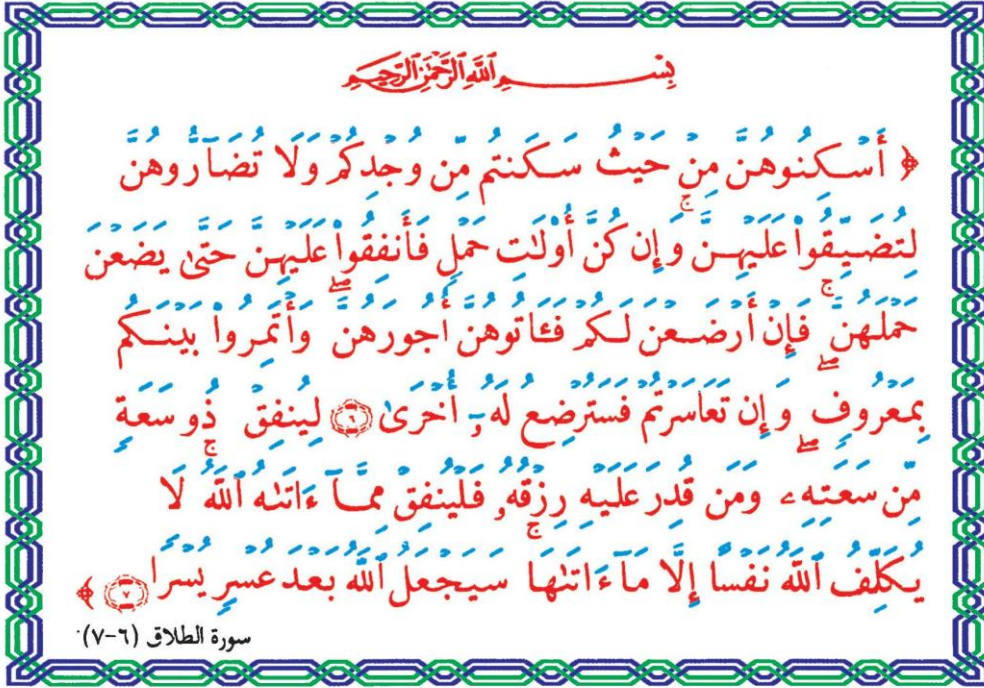 بِسْمِ ٱللَّهِ ٱلرَّحْمَٰنِ ٱلرَّحِيمِ
﴿ أَسْكِنُوهُنَّ مِنْ حَيْثُ سَكَنتُم مِّن وُجْدِكُمْ وَلَا تُضَآرُّوهُنَّ
لِتُضَيِّقُوا۟ عَلَيْهِنَّ ۚ وَإِن كُنَّ أُو۟لَٰتِ حَمْلٍ فَأَنفِقُوا۟ عَلَيْهِنَّ حَتَّىٰ يَضَعْنَ
حَمْلَهُنَّ ۚ فَإِنْ أَرْضَعْنَ لَكُمْ فَـَٔاتُوهُنَّ أُجُورَهُنَّ ۖ وَأْتَمِرُوا۟ بَيْنَكُم
بِمَعْرُوفٍ ۖ وَإِن تَعَاسَرْتُمْ فَسَتُرْضِعُ لَهُۥٓ أُخْرَىٰ ٦ لِيُنفِقْ ذُو سَعَةٍ
مِّن سَعَتِهِۦ ۖ وَمَن قُدِرَ عَلَيْهِ رِزْقُهُۥ فَلْيُنفِقْ مِمَّآ ءَاتَىٰهُ ٱللَّهُ ۚ لَا
يُكَلِّفُ ٱللَّهُ نَفْسًا إِلَّا مَآ ءَاتَىٰهَا ۚ سَيَجْعَلُ ٱللَّهُ بَعْدَ عُسْرٍ يُسْرًا ٧ ﴾
سورة الطلاق (٦-٧)